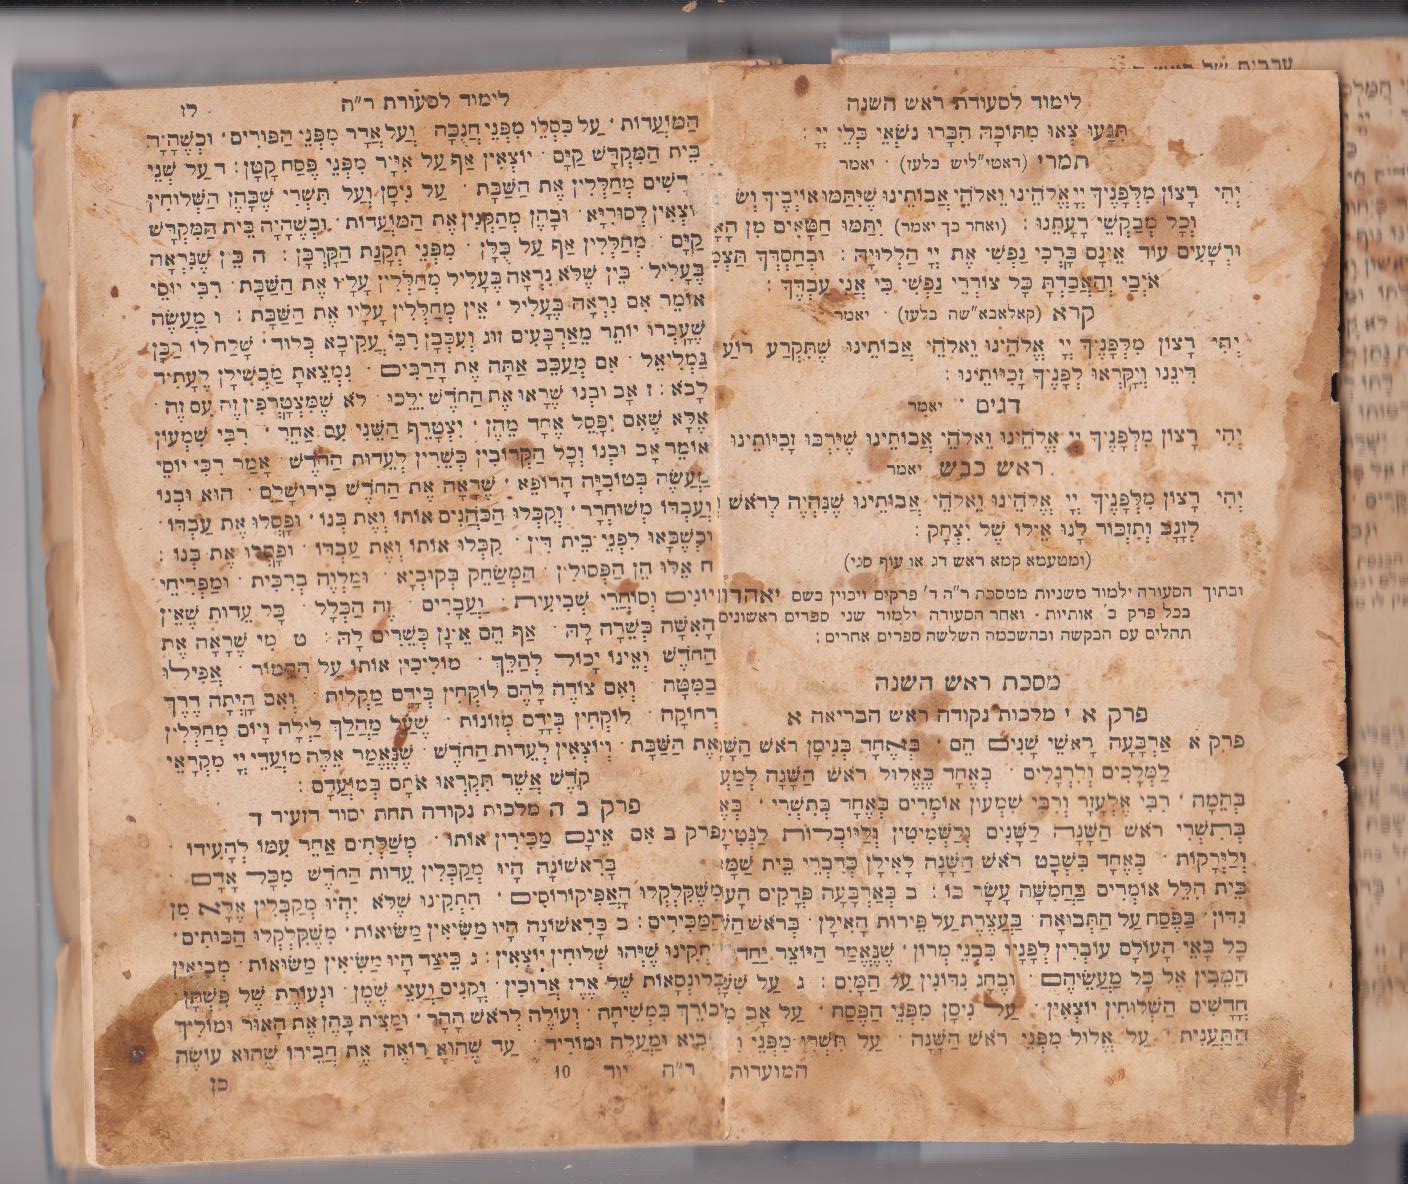 לימוד לסעודת ראש השנה
תִּגָּעוּ צְאוּ מִתּוֹכָהּ הִבָּרוּ נֹשְׂאֵי כְּלֵי יְיָ :
תמרי (ראטי"ליש בלעז) · יאמר
יְהִי רָצוֹן מִלְּפָנֶיךָ יְיָ אֱלֹהֵינוּ וֵאלֹהֵי אֲבוֹתֵינוּ שֶׁיִּתַּמּוּ אוֹיְבֶיךָ וְשׂ
וְכָל מְבַקְשֵׁי רָעָתֵנוּ : (ואחר כך יאמר) יִתַּמּוּ חַטָּאִים מִן הָאָ
וּרְשָׁעִים עוֹד אֵינָם בָּרְכִי נַפְשִׁי אֶת יְיָ הַלְלוּיָהּ : וּבְחַסְדְּךָ תַּצְמִ
אֹיְבָי וְהַאֲבַדְתָּ כָּל צוֹרְרֵי נַפְשִׁי כִּי אֲנִי עַבְדֶּךָ :
קרא (קאלאבא"שה בלעז) · יאמר
יְהִי רָצוֹן מִלְּפָנֶיךָ יְיָ אֱלֹהֵינוּ וֵאלֹהֵי אֲבוֹתֵינוּ שֶׁתִּקְרַע רוֹעַ
דִּינֵנוּ וְיִקָּרְאוּ לְפָנֶיךָ זָכִיּוֹתֵינוּ :
דגים · יאמר
יְהִי רָצוֹן מִלְּפָנֶיךָ יְיָ אֱלֹהֵינוּ וֵאלֹהֵי אֲבוֹתֵינוּ שֶׁיִּרְבּוּ זָכִיּוֹתֵינוּ
ראש כבש יאמר
יְהִי רָצוֹן מִלְּפָנֶיךָ יְיָ אֱלֹהֵינוּ וֵאלֹהֵי אֲבוֹתֵינוּ שֶׁנִּהְיֶה לְרֹאשׁ
לְזָנָב וְתִזְכּוֹר לָנוּ אֵילוֹ שֶׁל יִצְחָק :
(ומטעמא קמא ראש דג או עוף סגי)
ובתוך הסעודה ילמוד משניות ממסכת ר"ה ד' פרקים ויכוין בשם יאהדו
בכל פרק ב' אותיות · ואחר הסעודה ילמוד שני ספרים ראשונים
תהלים עם הבקשה ובהשכמה השלשה ספרים אחרים :
מסכת ראש השנה
פרק א י מלכות נקודה ראש הבריאה א
פרק א אַרְבָּעָה רָאשֵׁי שָׁנִים הֵם · בְּאֶחָד בְּנִיסָן רֹאשׁ הַשָּׁ
לַמְּלָכִים וְלָרְגָלִים · בְּאֶחָד בֶּאֱלוּל רֹאשׁ הַשָּׁנָה לְמַעְ
בְּהֵמָה · רִבִּי אֶלְעָזָר וְרִבִּי שִׁמְעוֹן אוֹמְרִים בְּאֶחָד בְּתִשְׁרֵי · בְּאֶ
בְּתִשְׁרֵי רֹאשׁ הַשָּׁנָה לַשָּׁנִים וְלַשְּׁמִיטִין וְלַיּוֹבְלוֹת לַנְּטִיעָ
וְלַיְרָקוֹת · בְּאֶחָד בִּשְׁבָט רֹאשׁ הַשָּׁנָה לָאִילָן כְּדִבְרֵי בֵּית שַׁמַּא
בֵּית הִלֵּל אוֹמְרִים בַּחֲמִשָּׁה עָשָׂר בּוֹ : ב בְּאַרְבָּעָה פְּרָקִים הָעֹ
נִדּוֹן · בְּפֶסַח עַל הַתְּבוּאָה בַּעֲצֶרֶת עַל פֵּירוֹת הָאִילָן · בְּרֹאשׁ הַשָּׁ
כָּל בָּאֵי הָעוֹלָם עוֹבְרִין לְפָנָיו כִּבְנֵי מָרוֹן · שֶׁנֶּאֱמַר הַיּוֹצֵר יַחַד
הַמֵּבִין אֶל כָּל מַעֲשֵׂיהֶם · וּבֶחָג נִדּוֹנִין עַל הַמַּיִם : ג עַל שִׁשָּׁ
חֳדָשִׁים הַשְּׁלוּחִין יוֹצְאִין · עַל נִיסָן מִפְּנֵי הַפֶּסַח · עַל אָב מִ
הַתַּעֲנִית · עַל אֱלוּל מִפְּנֵי רֹאשׁ הַשָּׁנָה · עַל תִּשְׁרֵי מִפְּנֵי
המועדות
לימוד לסעודת ר"ה לז
הַמּוֹעֲדוֹת · עַל כִּסְלֵו מִפְּנֵי חֲנֻכָּה וְעַל אֲדָר מִפְּנֵי הַפּוּרִים · וּכְשֶׁהָיָה
בֵּית הַמִּקְדָּשׁ קַיָּם · יוֹצְאִין אַף עַל אִיָּיר מִפְּנֵי פֶּסַח קָטָן : ד עַל שְׁנֵי
דָשִׁים מְחַלְּלִין אֶת הַשַּׁבָּת · עַל נִיסָן וְעַל תִּשְׁרֵי שֶׁבָּהֶן הַשְּׁלוּחִין
וֹצְאִין לְסוּרְיָא · וּבָהֶן מְתַקְּנִין אֶת הַמּוֹעֲדוֹת · וּכְשֶׁהָיָה בֵּית הַמִּקְדָּשׁ
קַיָּם · מְחַלְּלִין אַף עַל כֻּלָּן · מִפְּנֵי תַּקָּנַת הַקָּרְבָּן : ה בֵּין שֶׁנִּרְאָה
בַּעֲלִיל · בֵּין שֶׁלֹּא נִרְאָה בַּעֲלִיל מְחַלְּלִין עָלָיו אֶת הַשַּׁבָּת · רִבִּי יוֹסֵי
אוֹמֵר אִם נִרְאָה בַּעֲלִיל · אֵין מְחַלְּלִין עָלָיו אֶת הַשַּׁבָּת : ו מַעֲשֶׂה
שֶׁעָבְרוּ יוֹתֵר מֵאַרְבָּעִים זוּג וְעִכְּבָן רִבִּי עֲקִיבָא בְּלוּד · שָׁלַח לוֹ רַבָּן
גַּמְלִיאֵל · אִם מְעַכֵּב אַתָּה אֶת הָרַבִּים · נִמְצֵאתָ מַכְשִׁילָן לֶעָתִיד
לָבֹא : ז אָב וּבְנוֹ שֶׁרָאוּ אֶת הַחֹדֶשׁ יֵלֵכוּ · לֹא שֶׁמִּצְטָרְפִין זֶה עִם זֶה ·
אֶלָּא שֶׁאִם יִפָּסֵל אֶחָד מֵהֶן · יִצְטָרֵף הַשֵּׁנִי עִם אַחֵר · רִבִּי שִׁמְעוֹן
אוֹמֵר אָב וּבְנוֹ וְכָל הַקְּרוֹבִין כְּשֵׁרִין לְעֵדוּת הַחֹדֶשׁ · אָמַר רִבִּי יוֹסֵי
מַעֲשֶׂה בְּטוֹבִיָּה הָרוֹפֵא · שֶׁרָאָה אֶת הַחֹדֶשׁ בִּירוּשָׁלַם · הוּא וּבְנוֹ
וְעַבְדּוֹ מְשׁוּחְרָר · וְקִבְּלוּ הַכֹּהֲנִים אוֹתוֹ וְאֶת בְּנוֹ · וּפָסְלוּ אֶת עַבְדּוֹ ·
וּכְשֶׁבָּאוּ לִפְנֵי בֵּית דִּין · קִבְּלוּ אוֹתוֹ וְאֶת עַבְדּוֹ · וּפָסְלוּ אֶת בְּנוֹ :
ח אֵלּוּ הֵן הַפְּסוּלִין · הַמְשַׂחֵק בְּקוּבְיָא · וּמַלְוֶה בְּרִבִּית · וּמַפְרִיחֵי
יוֹנִים וְסוֹחֲרֵי שְׁבִיעִית · וַעֲבָדִים · זֶה הַכְּלָל · כָּל עֵדוּת שֶׁאֵין
הָאִשָּׁה כְּשֵׁרָה לָהּ · אַף הֵם אֵינָן כְּשֵׁרִים לָהּ : ט מִי שֶׁרָאָה אֶת
הַחֹדֶשׁ וְאֵינוֹ יָכוֹל לְהַלֵּךְ · מוֹלִיכִין אוֹתוֹ עַל הַחֲמוֹר · אֲפִילוּ
בַּמִּטָּה · וְאִם צוֹדֶה לָהֶם לוֹקְחִין בְּיָדָם מַקְלוֹת · וְאִם הָיְתָה דֶּרֶךְ
רְחוֹקָה · לוֹקְחִין בְּיָדָם מְזוֹנוֹת · שֶׁעַל מַהֲלַךְ לַיְלָה וָיוֹם מְחַלְּלִין
אֶת הַשַּׁבָּת · וְיוֹצְאִין לְעֵדוּת הַחֹדֶשׁ · שֶׁנֶּאֱמַר אֵלֶּה מוֹעֲדֵי יְיָ מִקְרָאֵי
קֹדֶשׁ אֲשֶׁר תִּקְרְאוּ אֹתָם בְּמוֹעֲדָם :
פרק ב ה מלכות נקודה תחת יסוד דזעיר ד
פרק ב אִם אֵינָם מַכִּירִין אוֹתוֹ · מְשַׁלְּחִים אַחֵר עִמּוֹ לְהָעִידוֹ
בָּרִאשׁוֹנָה הָיוּ מְקַבְּלִין עֵדוּת הַחֹדֶשׁ מִכָּל אָדָם
מִשֶּׁקִּלְקְלוּ הָאֶפִּיקוֹרוֹסִים · הִתְקִינוּ שֶׁלֹּא יִהְיוּ מְקַבְּלִין אֶלָּא מִן
הַמַּכִּירִים : ב בָּרִאשׁוֹנָה הָיוּ מַשִּׂיאִין מַשּׂוּאוֹת · מִשֶּׁקִּלְקְלוּ הַכּוּתִים ·
תְקִינוּ שֶׁיְּהוּ שְׁלוּחִין יוֹצְאִין : ג כֵּיצַד הָיוּ מַשִּׂיאִין מַשּׂוּאוֹת · מְבִיאִין
כְּלוּנְסָאוֹת שֶׁל אֶרֶז אֲרוּכִין · וְקָנִים וַעֲצֵי שֶׁמֶן · וּנְעוֹרֶת שֶׁל פִּשְׁתָּן
כוֹרֵךְ בִּמְשִׁיחָה · וְעוֹלֶה לְרֹאשׁ הָהָר · וּמַצִּית בָּהֶן אֶת הָאוּר וּמוֹלִיךְ
בִיא וּמַעֲלֶה וּמוֹרִיד · עַד שֶׁהוּא רוֹאֶה אֶת חֲבֵירוֹ שֶׁהוּא עוֹשֶׂה
ר"ה יוד 10 כן